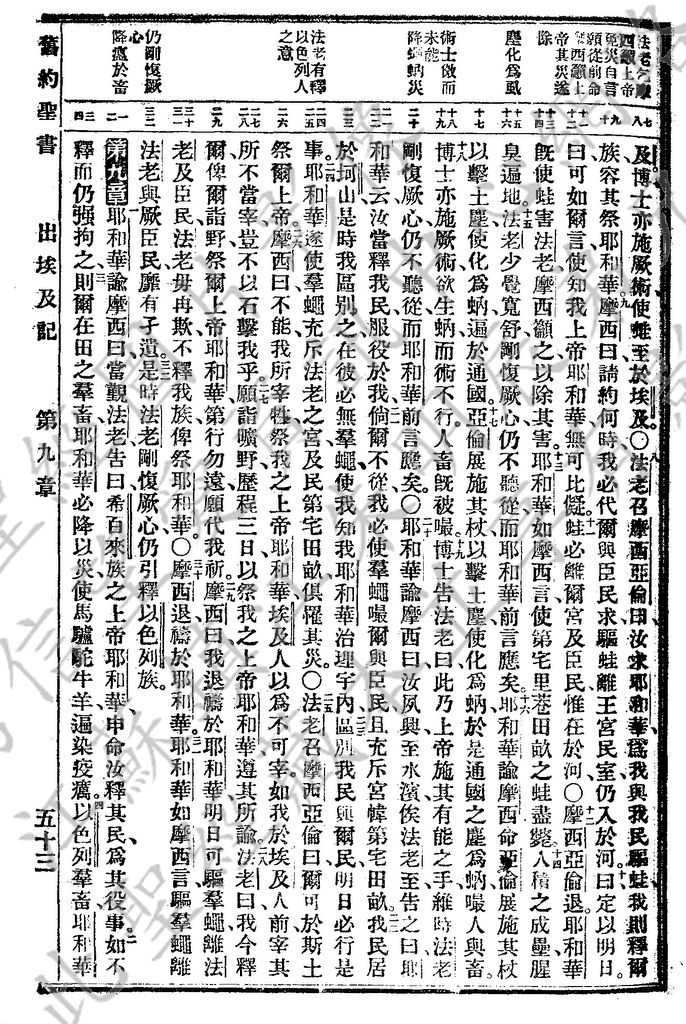 法老乞驅
四籲上帝
免災自言
願從前命
摩西籲上
帝其災遂
除
塵化爲虱
術士倣而
未能
降蠅蚋災
法老有釋
以色列人
之意
仍剛愎厥
心
降瘟於畜
七
八
九
十
十一
十二
十三
十四
十五
十六
十七
十八
十九
二十
二一
二二
二三
二四
二五
二六
二七
二八
二九
三十
三一
三二
一
二
三
四
及博士亦施厥術使蛙至於埃及○法老召摩西亞倫曰汝求耶和華爲我與我民驅蛙我則釋爾
族容其祭耶和華摩西曰請約何時我必代爾與臣民求驅蛙離王宮民室仍入於河曰定以明日
曰可如爾言使知我上帝耶和華無可比儗蛙必離爾宮及臣民惟在於河○摩西亞倫退耶和華
旣使蛙害法老摩西籲之以除其害耶和華如摩西言使第宅里巷田畝之蛙盡斃人積之成壘腥
臭遍地法老少覺寬舒剛愎厥心仍不聽從而耶和華前言應矣耶和華諭摩西命亞倫展施其杖
以擊土塵使化爲蚋遍於通國亞倫展施其杖以擊土塵使化爲蚋於是通國之塵爲蚋嘬人與畜
博士亦施厥術欲生蚋而術不行人畜旣被嘬博士告法老曰此乃上帝施其有能之手維時法老
剛愎厥心仍不聽從而耶和華前言應矣○耶和華諭摩西曰汝夙興至水濱俟法老至告之曰耶
和華云汝當釋我民服役於我倘爾不從我必使羣蠅嘬爾與臣民且充斥宮幃第宅田畝我民居
於坷山是時我區別之在彼必無羣蠅使我知我耶和華治理宇內區別我民與爾民明日必行是
事耶和華遂使羣蠅充斥法老之宮及民第宅田畝俱罹其災○法老召摩西亞倫曰爾可於斯土
祭爾上帝摩西曰不能我所宰牲祭我之上帝耶和華埃及人以爲不可宰如我於埃及人前宰其
所不當宰豈不以石擊我乎願詣曠野歷程三日以祭我之上帝耶和華遵其所諭法老曰我今釋
爾俾爾詣野祭爾上帝耶和華第行勿遠願代我祈摩西曰我退禱於耶和華明日可驅羣蠅離法
老及臣民法老毋再欺不釋我族俾祭耶和華○摩西退禱於耶和華耶和華如摩西言驅羣蠅離
法老與厥臣民靡有孑遺是時法老剛愎厥心仍引釋以色列族
第九章耶和華諭摩西曰當觀法老告曰希百來族之上帝耶和華申命汝釋其民爲其役事如不
釋而仍强拘之則爾在田之羣畜耶和華必降以災使馬驢駝牛羊遍染疫癘以色列羣畜耶和華
舊約聖書 出埃及記 第九章 五十三